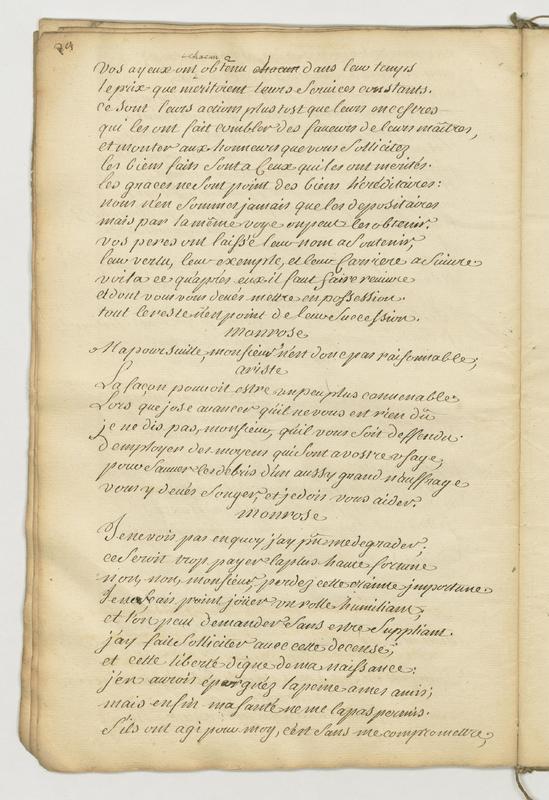 29
vos ayeux ont chacun obtenu chacun dans leur temps
le prix que meritoient leurs services constants.
ce sont leurs actions plustost que leurs ancestres
qui les ont fait combler des faveurs de leurs maîtres,
et monter aux honneurs que vous sollicitez
les bienfaits sont a ceux qui les ont merités.
les graces ne sont point des biens héréditaires:
nous n'en sommes jamais que les depositaires
mais par la même voye on peut les obtenir.
vos peres ont laissé leur nom a soutenir,
leur vertu, leur exemple, et leur carriere a suivre
voila ce qu'après eux il faut faire revivre
et dont vous vous devez mettre en possession.
tout le reste n'est point de leur succession.
Monrose
Ma poursuitte, monsieur, n'est donc pas raisonnable;
ariste
La façon pouvoit estre un peu plus convenable
Lors que j'ose avancer qu'il ne vous est rien dû
je ne dis pas, monsieur, qu'il vous soit deffendu
d'employer des moyens qui sont a vostre usage,
pour sauver les debris d'un aussy grand nauffrage
vous y devés songer, et je dois vous aider.
Monrose
Je ne vois pas en quoy j'ay pû me degrader;
ce seroit trop payer la plus haute fortune
non, non, monsieur, perdez cette crainte importune
Je ne sçais point joüer un rolle humiliant,
et l'on peut demander sans estre suppliant.
j'ay fait solliciter avec cette decense,
et cette liberté digne de ma naissance:
j'en aurois épargnéz la peine a mes amis;
mais enfin ma santé ne me l'a pas permis.
s'ils ont agi pour moy, c'est sans me compromettre,